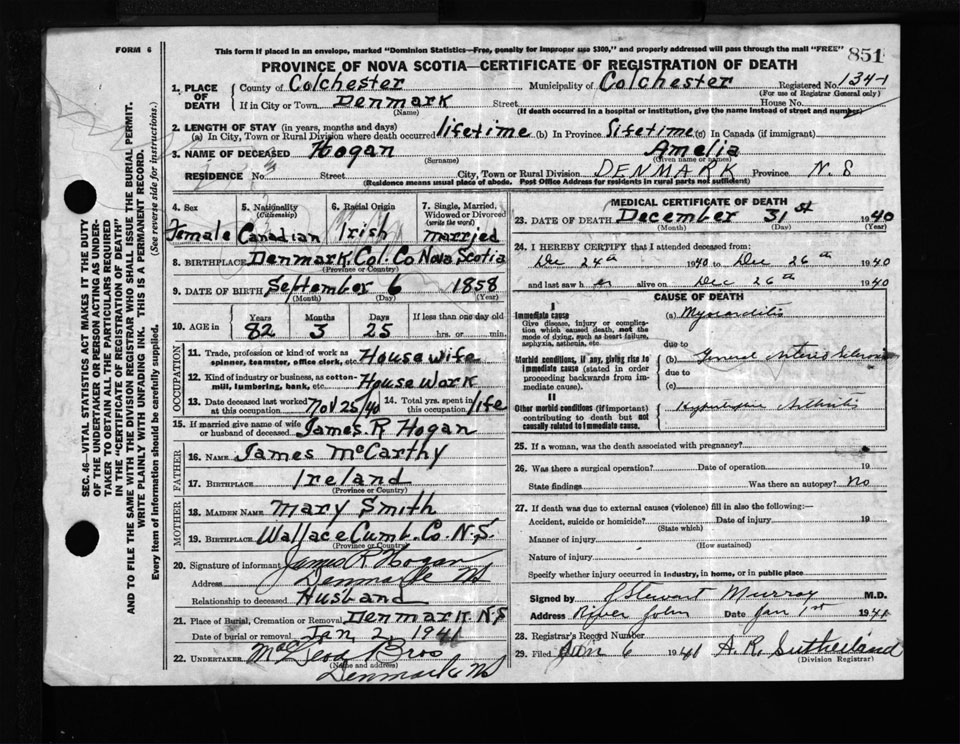 FORM 6
This form if placed in an envelope, marked "Dominion Statistics—Free, penalty for improper use $300," and properly addressed will pass through the mail "FREE"
851
PROVINCE OF NOVA SCOTIA—CERTIFICATE OF REGISTRATION OF DEATH
1. PLACE OF DEATH
County of Colchester Municipality of Colchester Registered No. 1341
(For use of Registrar General only)
If in City or Town Denmark Street House No.
(Name) (If death occurred in a hospital or institution, give the name instead of street and number)
2. LENGTH OF STAY (in years, months and days)
(a) In City, Town or Rural Division where death occurred lifetime (b) In Province Lifetime (c) In Canada (if immigrant)
3. NAME OF DECEASED Hogan Amelia
(Surname) (Given name or names)
RESIDENCE No. Street City, Town or Rural Division DENMARK Province N.S
(Residence means usual place of abode. Post Office Address for residents in rural parts not sufficient)
4. Sex Female
5. Nationality (Citizenship) Canadian
6. Racial Origin Irish
7. Single, Married, Widowed or Divorced (write the word) married
8. BIRTHPLACE Denmark Col. Co Nova Scotia
(Province or Country)
9. DATE OF BIRTH September 6 1858
(Month) (Day) (Year)
10. AGE in Years Months Days If less than one day old
82 3 25 hrs. or min.
OCCUPATION
11. Trade, profession or kind of work as spinner, teamster, office clerk, etc. House wife
12. Kind of industry or business, as cotton-mill, lumbering, bank, etc. House Work
13. Date deceased last worked at this occupation Nov 25/40 14. Total yrs. spent in this occupation life
15. If married give name of wife or husband of deceased James. R Hogan
FATHER
16. NAME James McCarthy
17. BIRTHPLACE Ireland
(Province or Country)
MOTHER
18. MAIDEN NAME Mary Smith
19. BIRTHPLACE Wallace Cumb. Co. N.S.
(Province or Country)
20. Signature of informant James R Hogan
Address Denmark NS
Relationship to deceased Husband
21. Place of Burial, Cremation or Removal Denmark N.S
Date of burial or removal Jan, 2, 1941
22. UNDERTAKER McLeod Bros
(Name and address)
Denmark NS
MEDICAL CERTIFICATE OF DEATH
23. DATE OF DEATH December 31st 1940
(Month) (Day) (Year)
24. I HEREBY CERTIFY that I attended deceased from:
Dec 24th 1940 to Dec 26th 1940
and last saw h er alive on Dec 26th 1940
CAUSE OF DEATH
I
Immediate cause
Give disease, injury or complication which caused death, not the mode of dying, such as heart failure, asphyxia, asthenia, etc.
(a) Myocarditis
due to
Morbid conditions, if any, giving rise to immediate cause (stated in order proceeding backwards from immediate cause).
(b) General Arterio Sclerosis
due to
(c)
II
Other morbid conditions (if important) contributing to death but not causally related to immediate cause.
Hypertrophic Arthritis
25. If a woman, was the death associated with pregnancy?
26. Was there a surgical operation? Date of operation 19
State findings Was there an autopsy? No
27. If death was due to external causes (violence) fill in also the following:—
Accident, suicide or homicide? Date of injury 19
(State which)
Manner of injury
(How sustained)
Nature of injury
Specify whether injury occurred in industry, in home, or in public place
Signed by J Stewart Murray M.D.
Address River John Date Jan 1st 1941
28. Registrar's Record Number
29. Filed Jan 6 1941 A. R. Sutherland
(Division Registrar)
SEC. 46—VITAL STATISTICS ACT MAKES IT THE DUTY
OF THE UNDERTAKER OR PERSON ACTING AS UNDER-
TAKER TO OBTAIN ALL THE PARTICULARS REQUIRED
IN THE "CERTIFICATE OF REGISTRATION OF DEATH"
AND TO FILE THE SAME WITH THE DIVISION REGISTRAR WHO SHALL ISSUE THE BURIAL PERMIT.
WRITE PLAINLY WITH UNFADING INK. THIS IS A PERMANENT RECORD.
Every item of information should be carefully supplied. (See reverse side for instructions.)